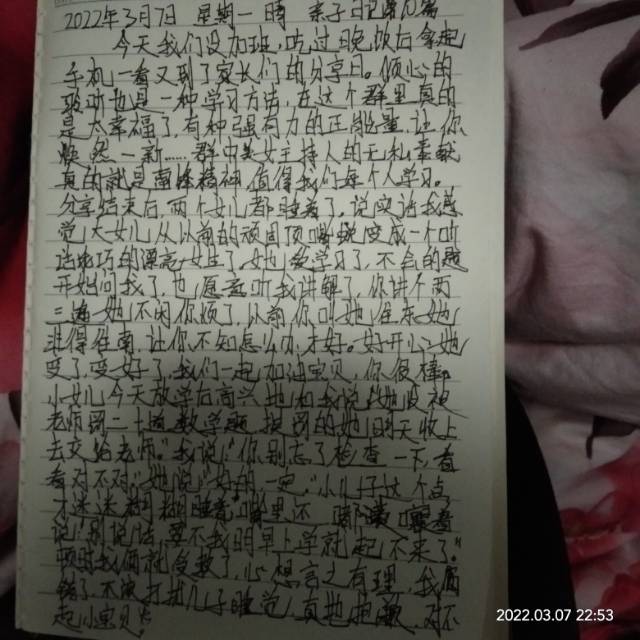 2022年3月7日 星期一 晴 亲子日记第10篇
今天我们没加班,吃过晚饭后拿起
手机一看又到了家长们的分享日。倾心的
聆听也是一种学习方法,在这个群里真的
是太幸福了,有种强有力的正能量,让你
焕然一新……群中美女主持人的无私奉献
真的就是雷锋精神,值得我们每个人学习。
分享结束后,两个女儿都睡着了。说实话我感
觉大女儿从以前的顽固顶嘴就变成一个听
话乖巧的漂亮女生了。她爱学习了,不会的题
开始问我了,也愿意听我讲解了。你讲个两
三遍她不闲你烦了,从前你叫她往东她
非得往南,让你不知怎么办才好。好开心她
变了,变好了,我们一起加油宝贝,你很棒。
小女儿今天放学后高兴地和我说
老师 二十道数学题, 的她明天收上
去交给老师。"我说:"你别忘了检查一下,看
看对不对。"她说:"好的,一定。"儿子这个点
才迷迷糊糊睡着,嘴里还
说:"别说话,要不我明早上学就起不来了。"
顿时我俩就 了,心想言之有理,我俩
错了,不该打扰儿子睡觉,真地抱歉,对不
起小宝贝!
2022.03.07 22:53